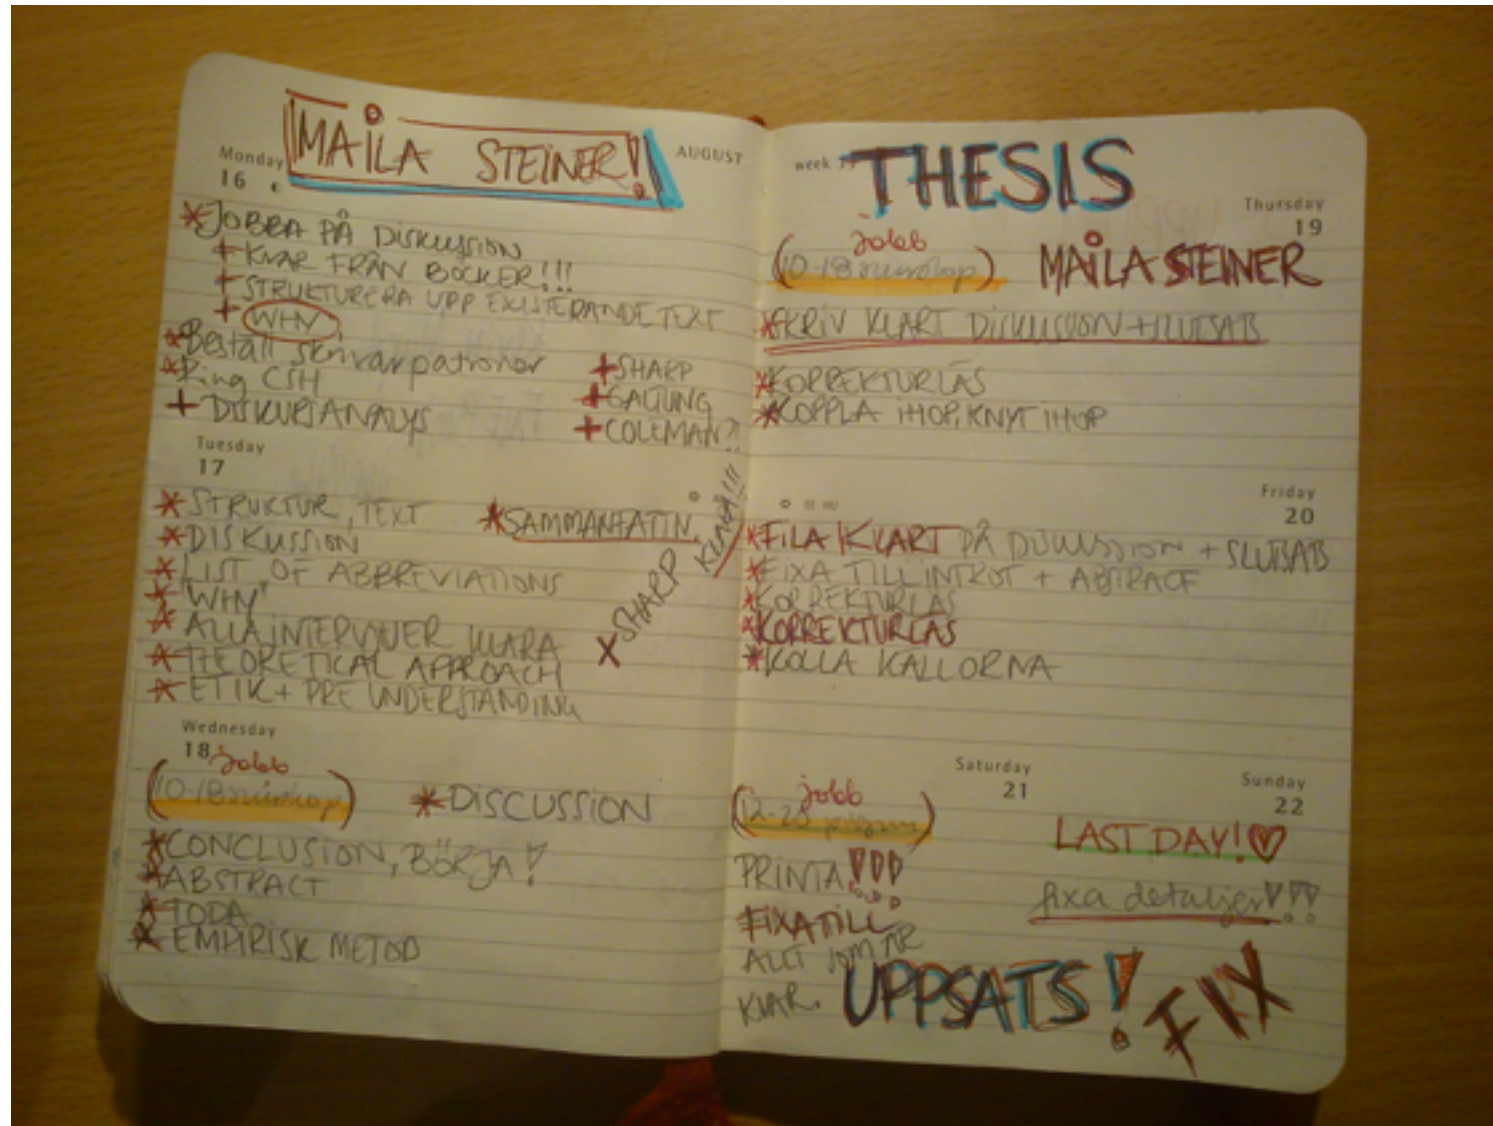 MAILA STEINER!
Monday
16
AUGUST
*JOBBA PÅ DISKUSSION
+KVAR FRÅN BÖCKER!!!
+STRUKTURERA UPP EXISTERANDE TEXT
+ WHY
*Beställ skrivarpatroner
*Ring CSN
+ DISKURSANALYS
+SHARP
+GALTUNG
+COLEMAN?!
Tuesday
17
*STRUKTUR, TEXT
*DISKUSSION
*LIST OF ABBREVIATIONS
*"WHY"
*ALLA INTERVJUER KLARA
*THEORETICAL APPROACH
*ETIK + PRE UNDERSTANDING
*SAMMANFATTN.
X SHARP KLAR!!!
Wednesday
18
jobb
(10-18)
*DISCUSSION
*CONCLUSION, BÖRJA!
*ABSTRACT
*TODA
*EMPIRISK METOD
week 33
THESIS
Thursday
19
jobb
(10-18)
MAILA STEINER
*SKRIV KLART DISKUSSION + SLUTSATS
*KORREKTURLÄS
*KOPPLA IHOP, KNYT IHOP
Friday
20
*FILA KLART PÅ DISKUSSION + SLUTSATS
*FIXA TILL INTROT + ABSTRACT
*KORREKTURLÄS
*KORREKTURLÄS
*KOLLA KÄLLORNA
Saturday
21
jobb
PRINTA!!!
FIXA TILL
ALLT SOM ÄR
KVAR.
Sunday
22
LAST DAY!
fixa detaljer!!!
UPPSATS!
FIX